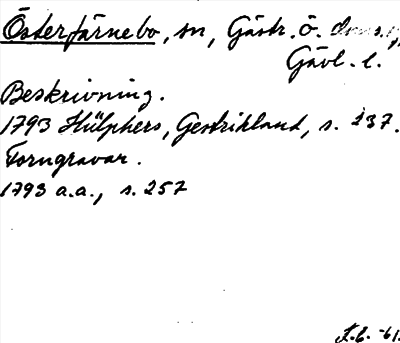 Österfärnebo, sn, Gästr. ö.
Gävl. l.
Beskrivning.
1793 Hülphers, Gestrikland, s. 237.
Forngravar.
1793 a.a., s. 257
-61.